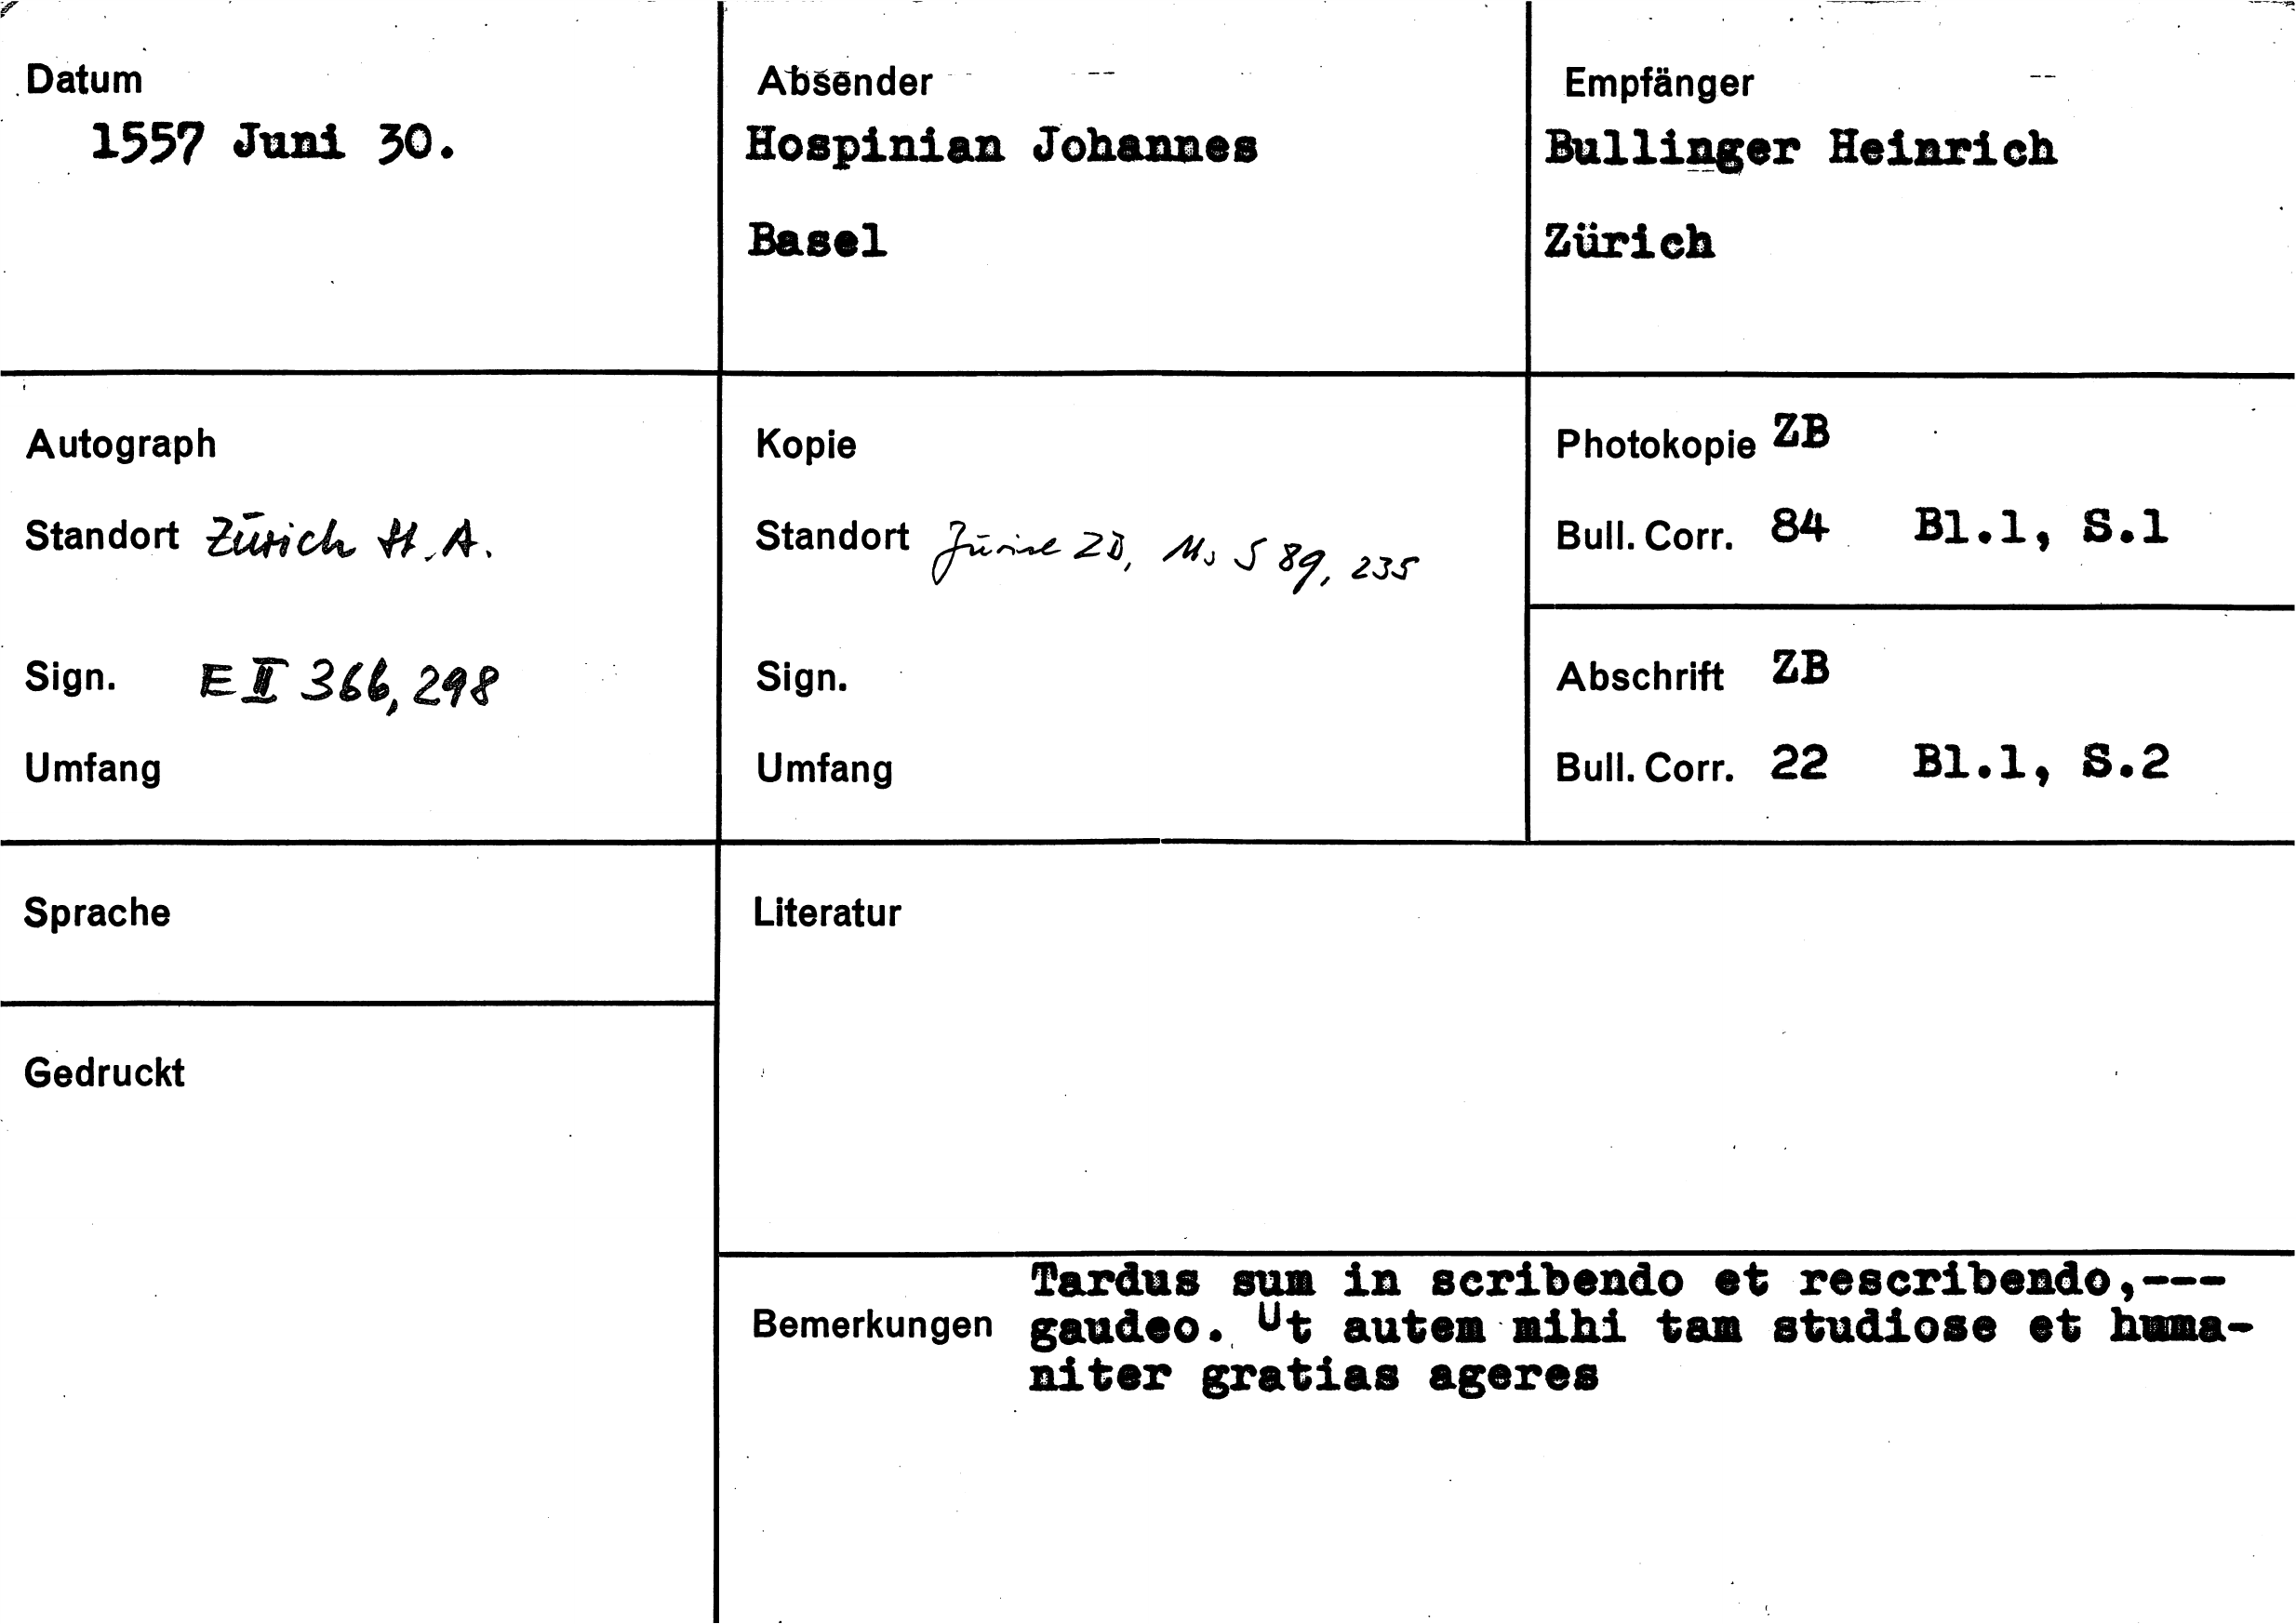 Datum
1557 Juni 30.
Absender
Hospinian Johannes
Basel
Empfänger
Bullinger Heinrich
Zürich
Autograph
Standort Zürich St. A.
Sign. E II 366, 298
Umfang
Kopie
Standort Zürich ZB, Ms S 89, 235
Sign.
Umfang
Photokopie ZB
Bull. Corr. 84 Bl.1, S.1
Abschrift ZB
Bull. Corr. 22 Bl.1, S.2
Sprache
Gedruckt
Literatur
Bemerkungen
Tardus sum in scribendo et rescribendo,---
gaudeo. Ut autem mihi tam studiose et huma-
niter gratias ageres